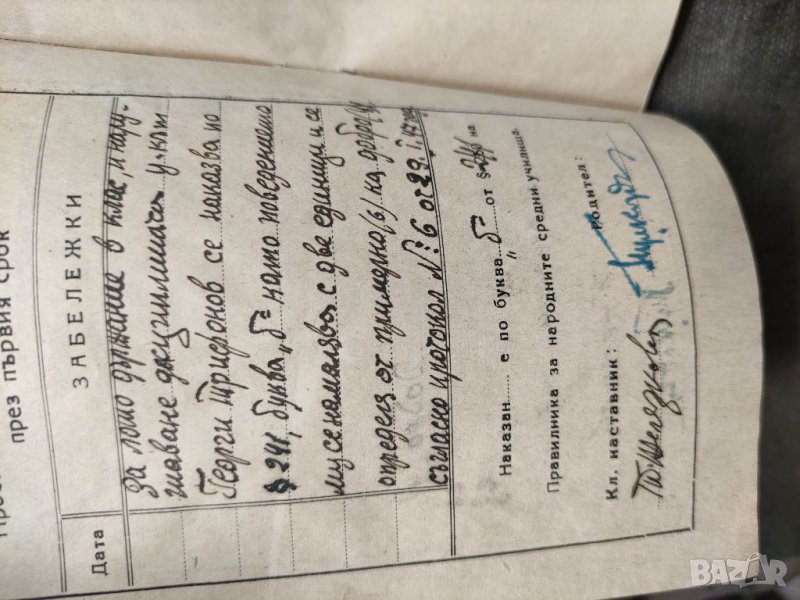 през първия срок
ЗАБЕЛЕЖКИ
Дата
за лошо държание в клас, и нару-
шаване дисциплината у. към
Георги Трифонов се наказва по
§ 241, буква „б" като поведението
му се намалява с две единици и се
определя от примерно (6) на добро (4)
съгласно протокол № 6 от 29.
Наказан...... е по буква „б" от § 241 на
Правилника за народните средни училища.
Кл. наставник: Родител:
BAZAR